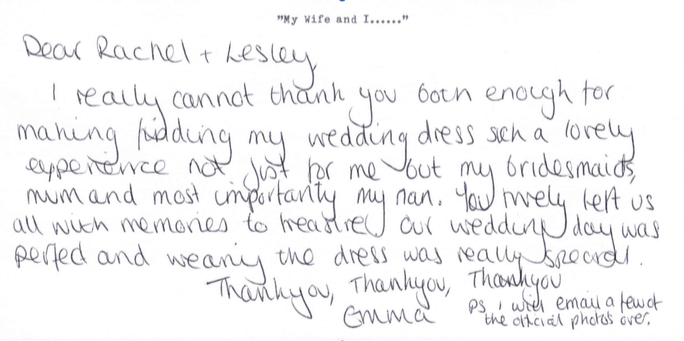 "My Wife and I......"
Dear Rachel + Lesley,
I really cannot thank you both enough for
making finding my wedding dress such a lovely
experience not just for me but my bridesmaids,
mum and most importantly my nan. You truely left us
all with memories to treasure, our wedding day was
perfect and wearing the dress was really special.
Thankyou, Thankyou, Thankyou
Emma
PS i will email a few of
the official photos over.